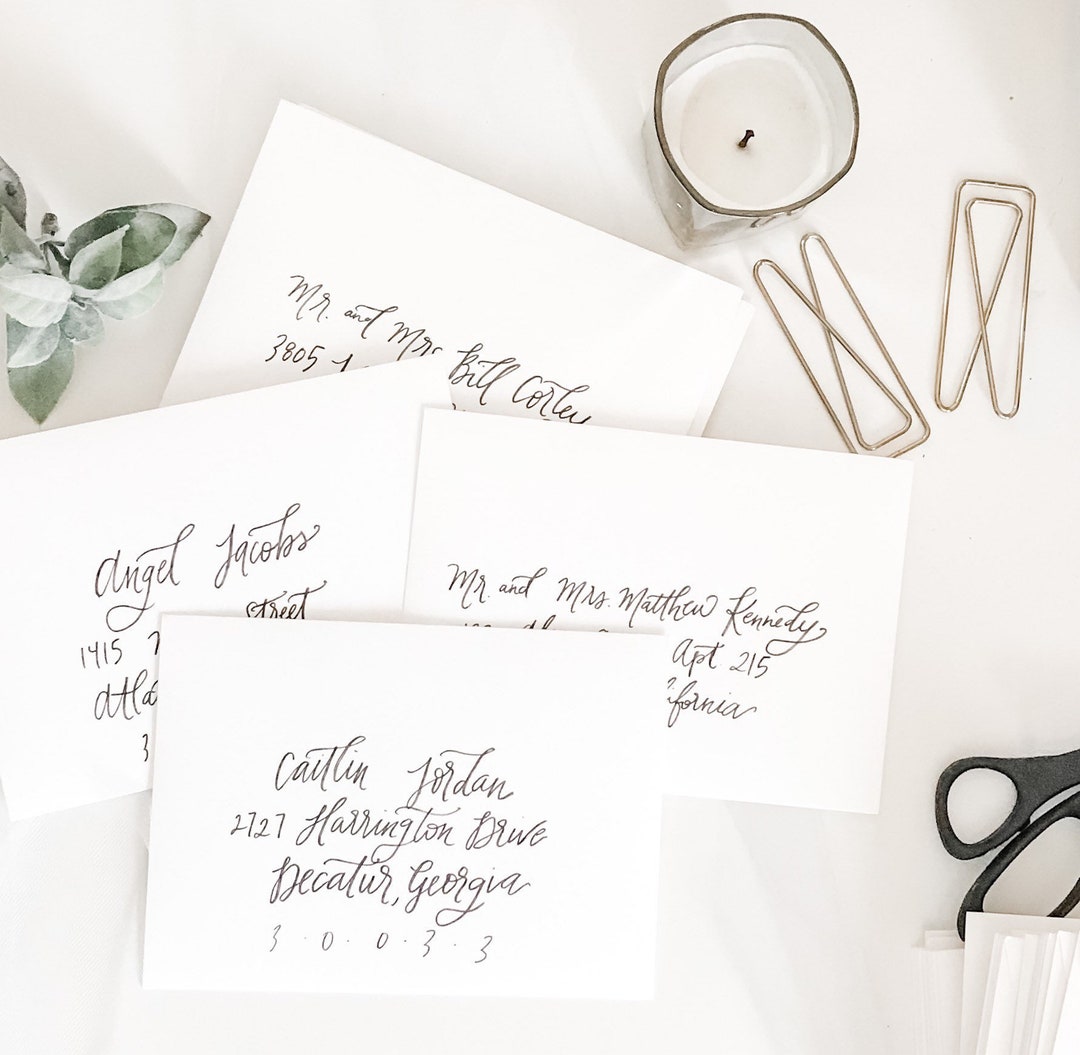 Mr. and Mrs. Bill Corley
3805
Angel Jacobs
street
1415
Mr. and Mrs. Matthew Kennedy
Apt 215
Caitlin Jordan
2727 Harrington Drive
Decatur, Georgia
3 · 0 · 0 · 3 · 3